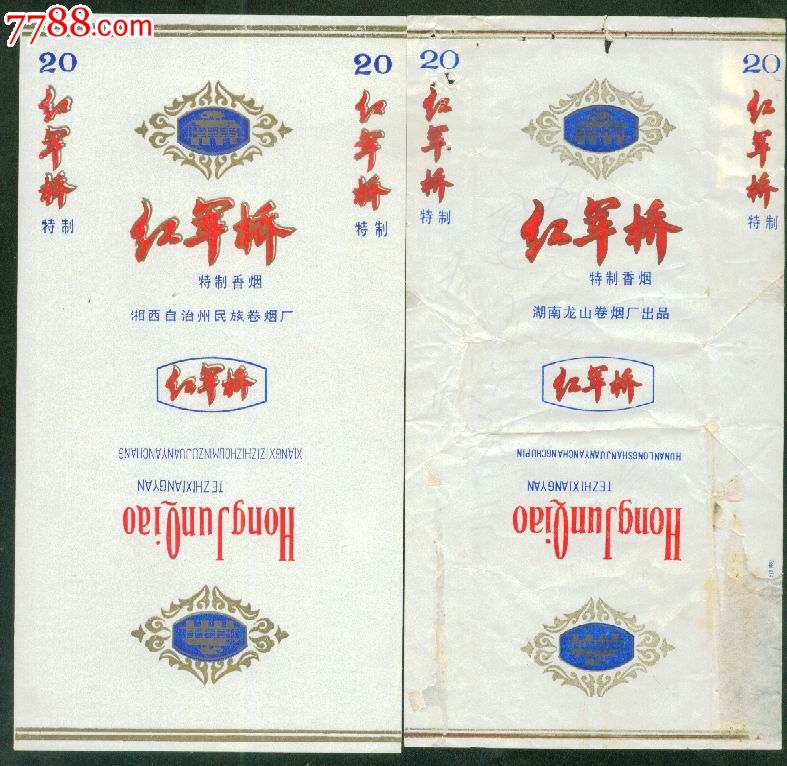 7788.com
20
红军桥
特制
20
红军桥
特制
红军桥
特制香烟
湘西自治州民族卷烟厂
红军桥
XIANGXIZIZHIZHOUMINZUJUANYANCHANG
TEZHIXIANGYAN
HongJunQiao
20
红军桥
特制
20
红军桥
特制
红军桥
特制香烟
湖南龙山卷烟厂出品
红军桥
HUNANLONGSHANJUANYANCHANGCHUPIN
TEZHIXIANGYAN
HongJunQiao